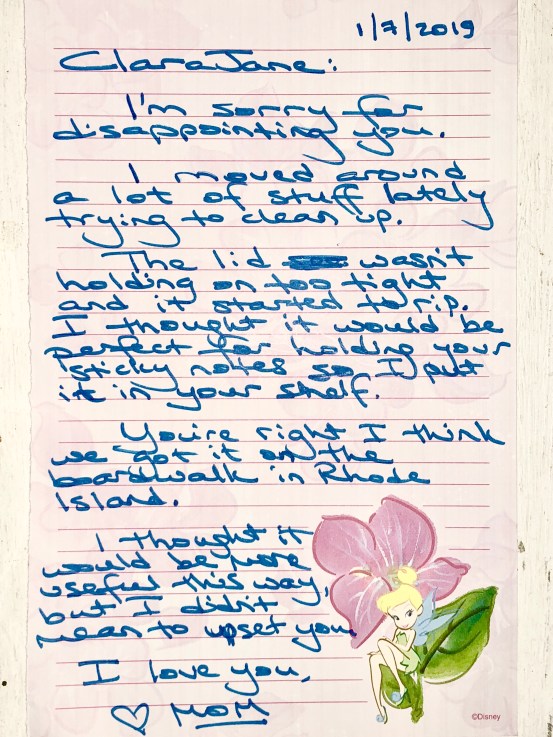 1/7/2019
ClaraJane:
I'm sorry for
disappointing you.
I moved around
a lot of stuff lately
trying to clean up.
The lid wasn't
holding on too tight
and it started to rip.
I thought it would be
perfect for holding your
sticky notes so I put
it in your shelf.
You're right I think
we got it on the
boardwalk in Rhode
Island.
I thought it
would be more
useful this way,
but I didn't
mean to upset you
I love you,
♡ MOM
©Disney